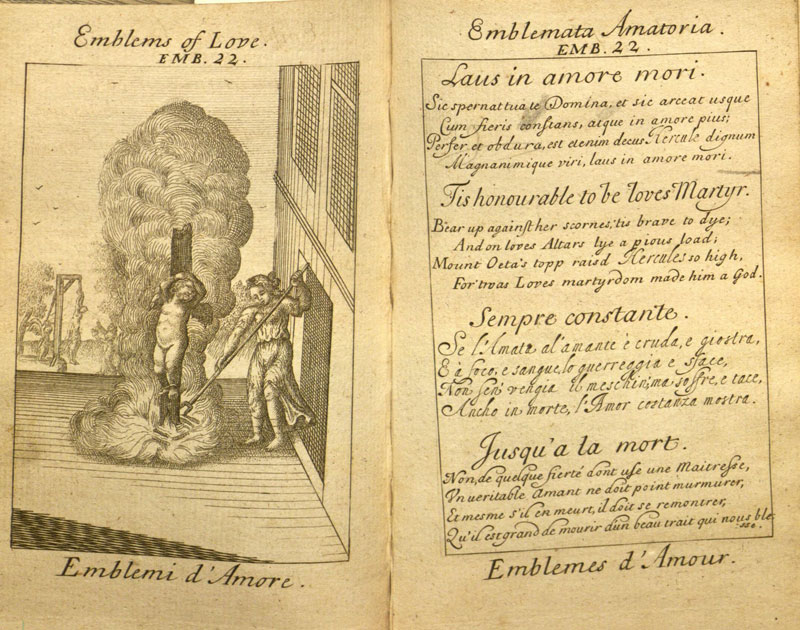 Emblems of Love.
EMB. 22.
Emblemi d'Amore.
Emblemata Amatoria.
EMB. 22.
Laus in amore mori.
Sic spernat tua te Domina, et sic arceat usque
Cum fieris constans, atque in amore pius;
Perfer et obdura, est etenim decus Hercule dignum
Magnanimique viri, laus in amore mori.
Tis honourable to be loves Martyr.
Bear up against her scornes, tis brave to dye;
And on loves Altars lye a pious load;
Mount Oeta's topp raisd Hercules so high,
For twas Loves martyrdom made him a God.
Sempre constante.
Se l'Amata al'amante è cruda, e giostra,
E à foco, e sangue, lo guerreggia e sface,
Non sen' vengia il meschin, ma soffre, e tace,
Anche in morte, l'Amor costanza mostra.
Jusqu'a la mort.
Non, de quelque fierté dont use une Maitresse,
Vn veritable Amant ne doit point murmurer,
Et mesme s'il en meurt, il doit se remontrer,
Qu'il est grand de mourir d'un beau trait qui nous ble
sse.
Emblemes d'Amour.